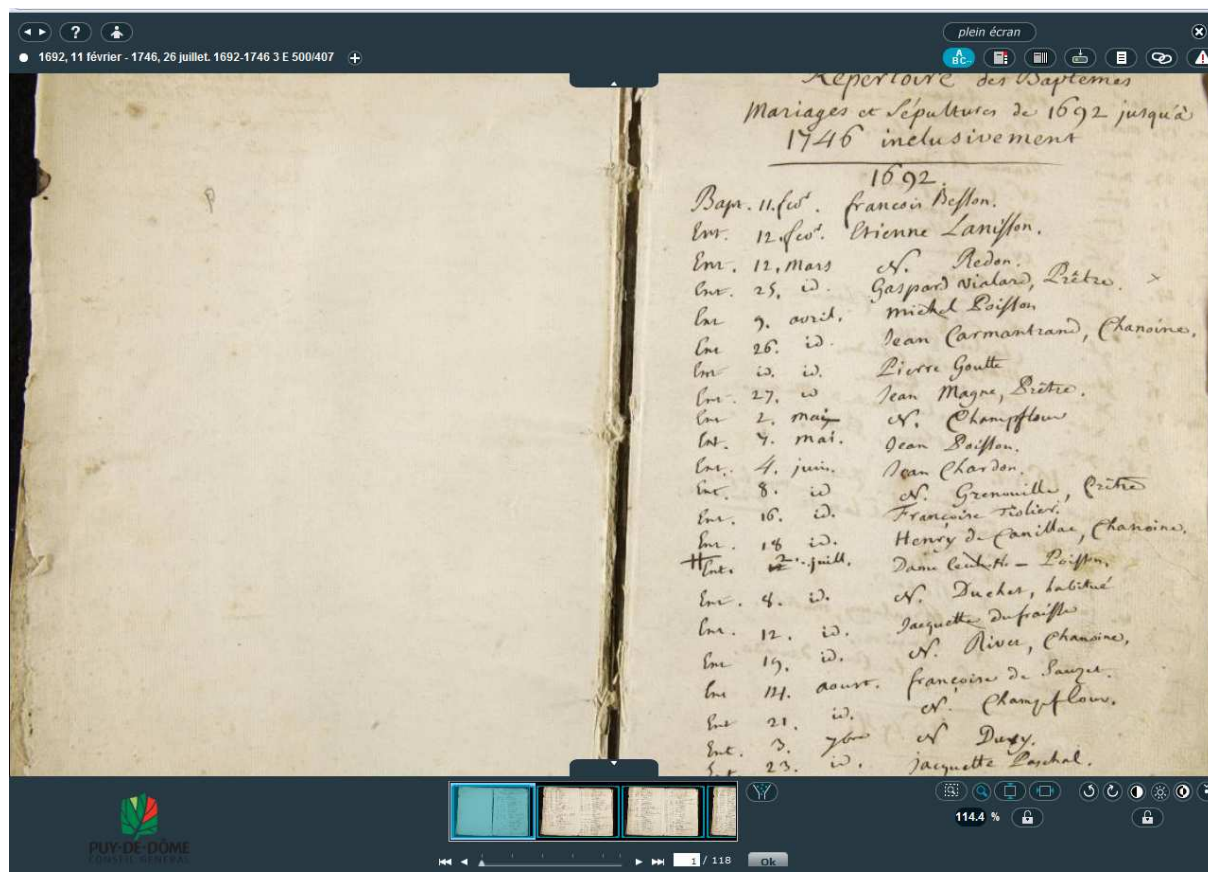 plein écran
1692, 11 février - 1746, 26 juillet. 1692-1746 3 E 500/407
A
BC
Répertoire des Baptemes
Mariages et Sépultures de 1692 jusqu'à
1746 inclusivement
1692.
Bapt. 11. fevr. francois Besson.
Ent. 12. fevr. Etienne Lanisson.
Ent. 12. Mars N. Redon.
Ent. 25, id. Gaspard Vialard, Prêtre. ×
Ent 9. avril. michel Poisson
Ent 26. id. Jean Carmantrand, Chanoine.
Ent id. id. Pierre Goutte
Ent. 27. id Jean Magne, Prêtre.
Ent 2. mai N. Champflour
Ent. 7. mai. Jean Poisson.
Ent. 4. juin. Jean Chardon.
Ent. 8. id N. Grenouille, Prêtre
Ent. 16. id. Françoise Tiolier.
Ent. 18 id. Henry de Canillac, Chanoine.
Ent. 2. juill. Dame Poisson.
Ent. 8. id. N. Ducher, habitué
Ent. 12. id. Jacquette dufraisse
Ent 19. id. N. River, Chanoine,
Ent 14. aoust. françoise de Sauzet.
Ent 21. id. N. Champflour.
Ent. 3. 7bre N
Ent 23. id. jacquette Paschal.
PUY-DE-DÔME
CONSEIL GÉNÉRAL
114.4 %
1 / 118 Ok